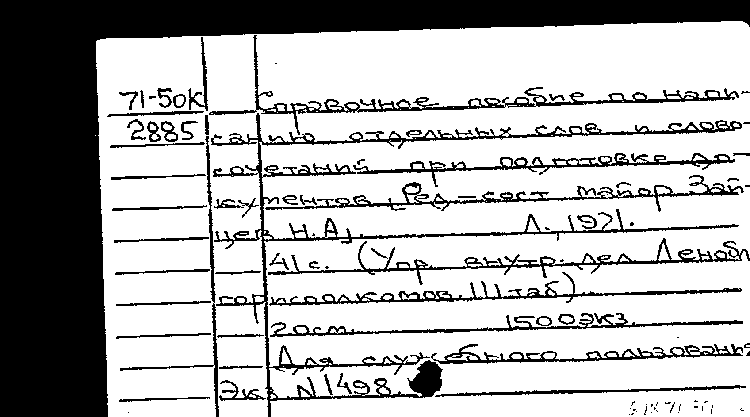 71-50К Справочное пособие по напи-
2885 санию отдельных слов и слово-
сочетаний при подготовке до-
кументов. [Ред.-сост. майор Зай-
цев Н.А.]. Л., 1971.
41 с. (Упр. внутр. дел Ленобл
горисполкомов.
20см. 1500экз.
Для служебного пользования
Экз. N 1498.